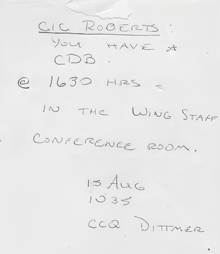 CIC ROBERTS:
YOU HAVE A
CDB.
@ 1630 HRS -
IN THE WING STAFF
CONFERENCE ROOM.
15 AUG
1035
CCQ DITTMER